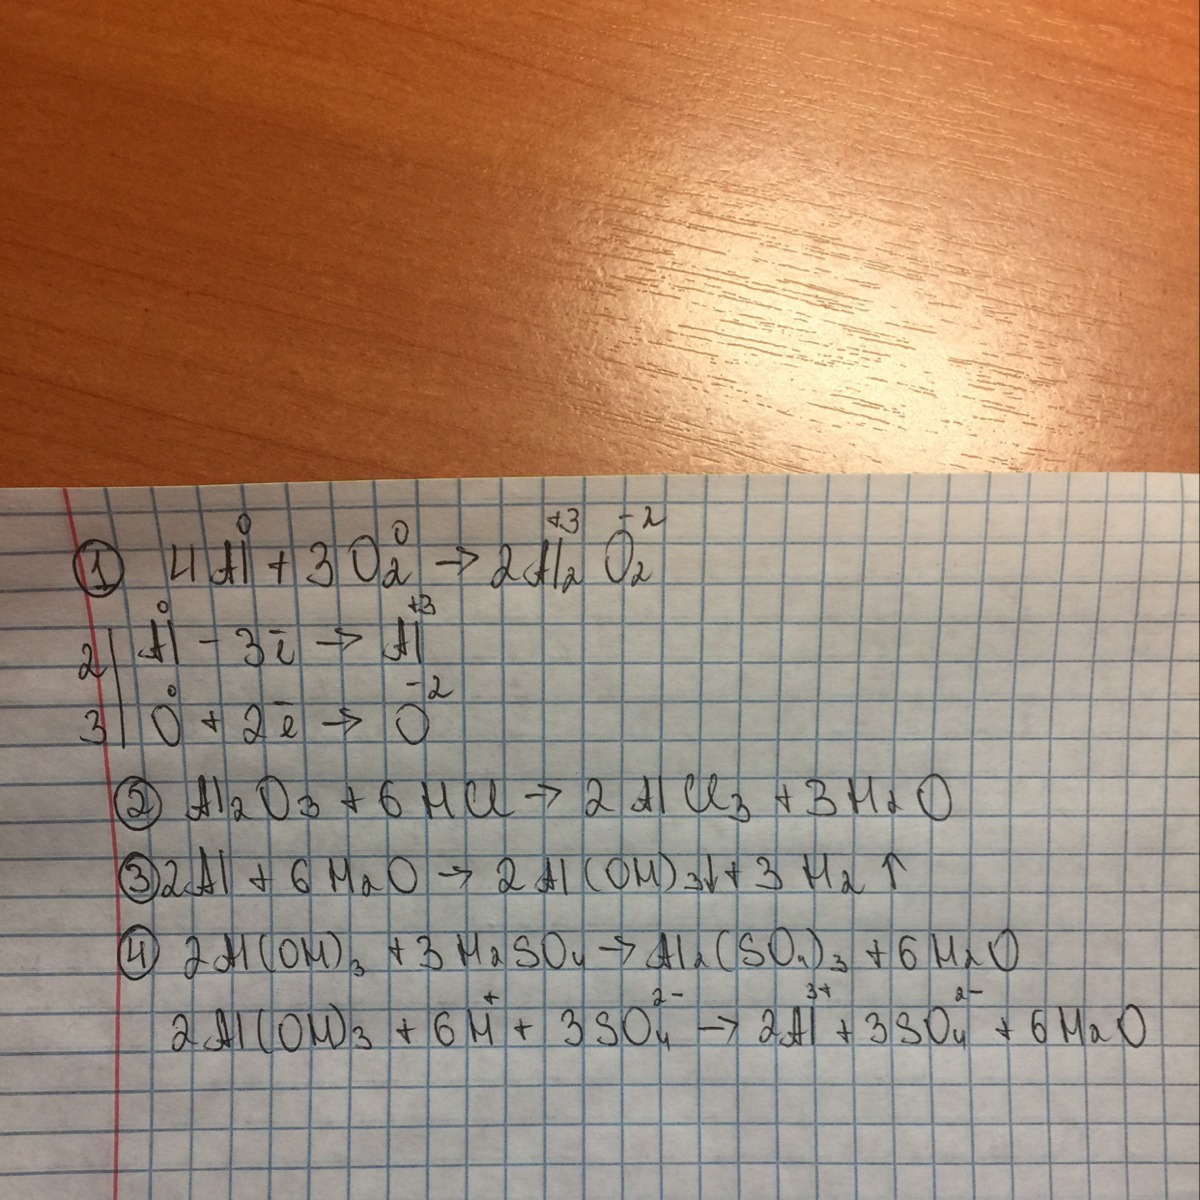 ① 4Al⁰ + 3O₂⁰ → 2Al₂⁺³O₂⁻²
2| Al⁰ - 3ē → Al⁺³
3| O⁰ + 2ē → O⁻²
② Al₂O₃ + 6HCl → 2AlCl₃ + 3H₂O
③ 2Al + 6H₂O → 2Al(OH)₃↓ + 3H₂↑
④ 2Al(OH)₃ + 3H₂SO₄ → Al₂(SO₄)₃ + 6H₂O
2Al(OH)₃ + 6H⁺ + 3SO₄²⁻ → 2Al³⁺ + 3SO₄²⁻ + 6H₂O